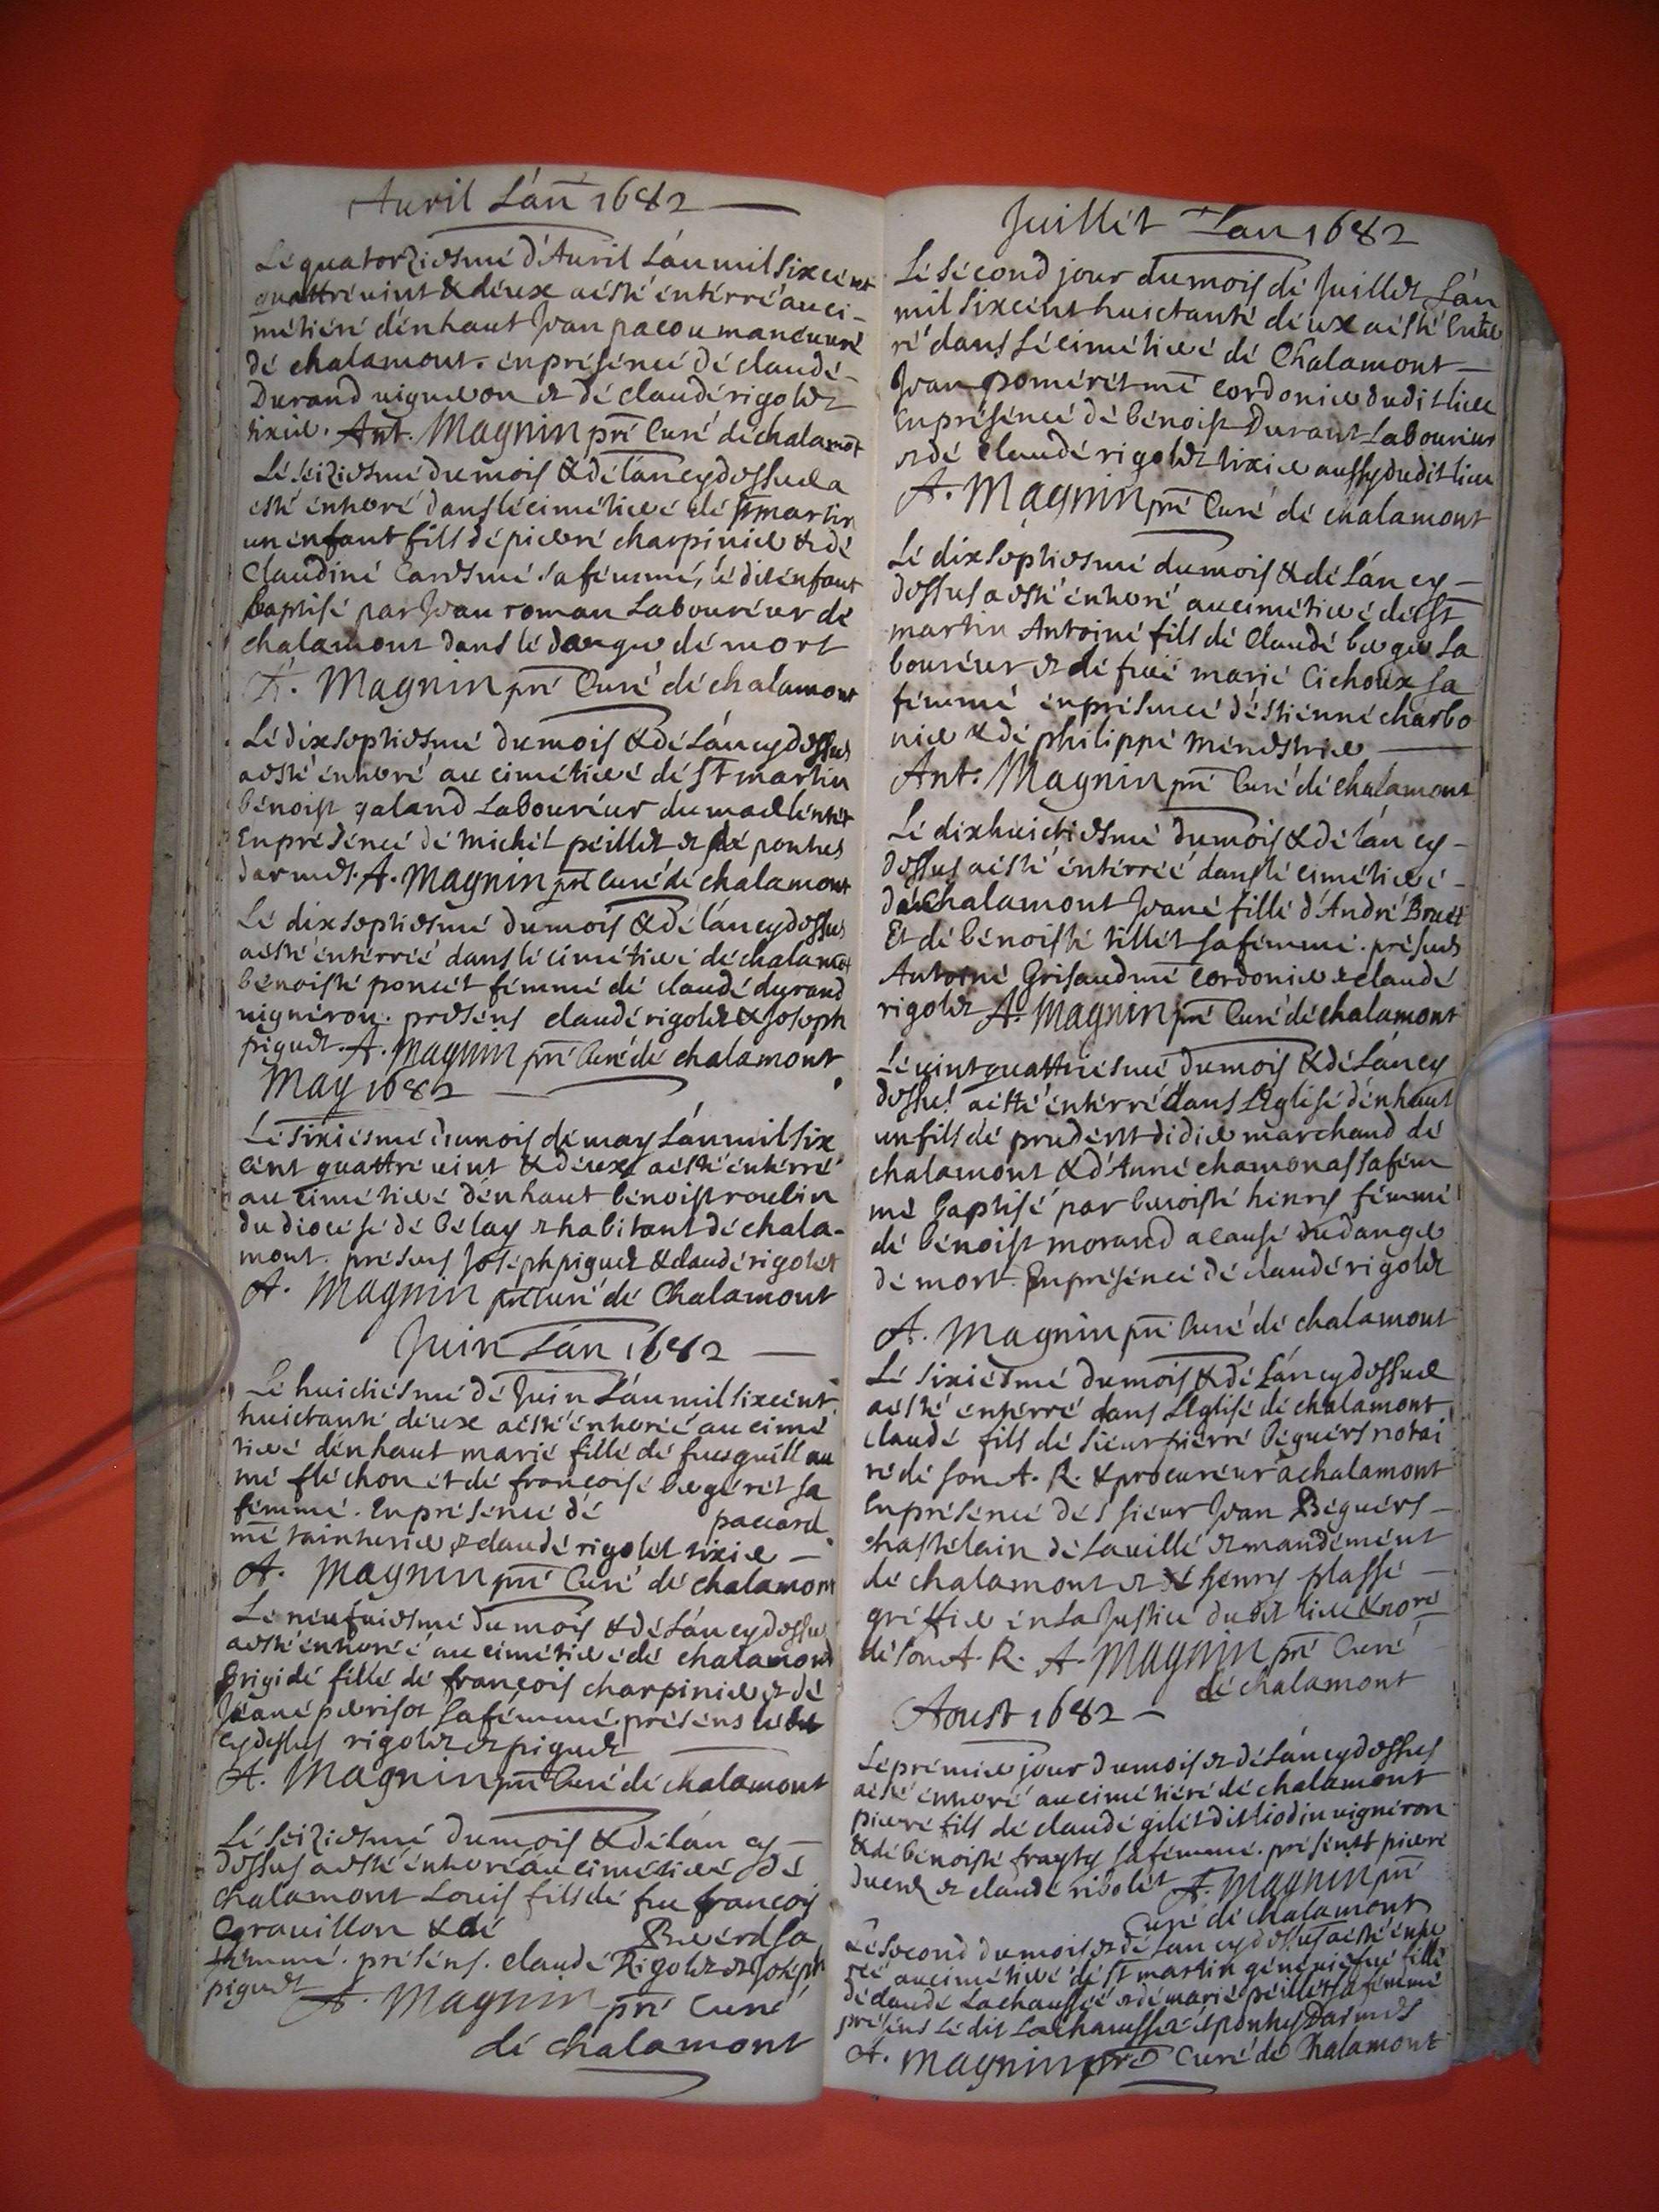 Auril L'an 1682
Lé quatorziesmé d'Auril L'an mil six cént
quattréuint & deux a ésté éntérré au ci-
métiéré d'énhaut Jean pacou maneuuré
dé chalamont. én présencé dé claudé
Durand uigneron et dé claudé rigolet
tixié. Ant. Magnin pré Curé dé chalamot
Lé séiziesmé du mois & dé l'an cy dessus a
ésté énterré dans lé cimétieré dé st martin
un énfant fils dé pierré charpinier & dé
Claudiné Caresmé sa fémmé, lé dit énfant
baptisé par Jean roman Labouréur dé
chalamont dans lé danger dé mort
A. Magnin pré Curé dé chalamont
Lé dixseptiesmé du mois & dé L'an cy dessus
a esté énterré au cimétieré dé St martin
bénoist galand Labouréur du
En présencé dé Michél péillet et dé ponthus
darmés. A. Magnin pré Curé dé chalamont
Lé dixseptiesmé du mois & dé l'an cy dessus
a ésté éntérréé dans lé cimétieré dé chalamot
bénoisté poncét fémmé dé claudé durand
uignéron. preséns claudé rigolet & Joseph
piguet. A. Magnin pré Curé dé chalamont
May 1682
Lé sixiésmé du mois dé may L'an mil six
cént quattré uint & déux a ésté éntérré
au cimétieré d'énhaut bénoist roubin
du diocésé dé bélay et habitant dé chala-
mont. présens Joséph piguet & claudé rigolet
A. Magnin pré Curé dé Chalamont
Juin L'an 1682
Le huictiésmé dé Juin L'an mil six cént
huictanté déux a ésté énterréé au cimé
tieré d'énhaut marié fillé dé fu esguillau
mé fléchon ét dé francoisé bergérét sa
fémmé. En présencé dé paccard
mé tainturier et claudé rigolet tixier
A. Magnin pré Curé dé chalamont
Lé néufuiesmé du mois & dé L'an cy dessus
a esté énterréé au cimétieré dé chalamont
Brigidé fillé dé françois charpinier et dé
Jéané perisot sa fémmé. préséns
cy dessus rigolet et piguet
A. Magnin pré Curé dé chalamont
Lé séiziesmé du mois & dé l'an cy
dessus a esté énterré au cimétieré dé
chalamont Louis fils dé feu françois
Grauillon & dé sa
fémmé. préséns. claudé Rigolet et Joséph
piguet A. Magnin pré Curé
dé chalamont
Juillét L'an 1682
Lé sécond jour du mois dé Juillet L'an
mil six cént huictanté déux a ésté Enter
ré dans Lé cimétieré dé Chalamont
Jean pomérét mé cordonier dudit lieu
En présencé dé bénoist Durant Labouréur
et dé Claudé rigolet tixier aussy dudit lieu
A. Magnin pré Curé dé chalamont
Lé dixseptiesmé du mois & dé L'an cy
dessus a esté énterré au cimétieré dé St
martin Antoiné fils dé Claudé berger La
bouréur et dé fuë marié Cichoux sa
fémmé én présencé d'éstienné charbo
nier & dé philippé ménestrier
Ant. Magnin pré Curé dé chalamont
Lé dixhuictiesmé du mois & dé l'an cy
dessus a ésté éntérréé dans lé cimétieré
dé Chalamont Jeané fillé d'André
Et dé bénoisté tillét sa fémmé. présens
Antoiné Grisaud mé cordonier & claudé
rigolet A. Magnin pré Curé dé chalamont
Lé uintquattriésmé du mois & dé L'an cy
dessus a ésté éntérré dans L'églisé d'énhaut
un fils dé prudént didier marchand dé
chalamont & d'Anné chamonas sa fém
mé baptisé par benoisté henry fémmé
dé bénoist morand a causé du danger
dé mort. En présencé dé claudé rigolet
A. Magnin pré Curé dé chalamont
Lé sixiesmé du mois & dé L'an cy dessus
a ésté éntérré dans L'églisé dé chalamont
claudé fils dé siéur piérré béguérs notai
ré dé son A. R. & procuréur à chalamont
En présencé dé siéur Jean Béguérs
chastélain dé La uillé et mandémént
dé chalamont et dé henry plassé
gréffier én La Justicé dudit lieu & noré
dé son A. R. A. Magnin pré Curé
dé chalamont
Aoust 1682
Lé prémier jour du mois et dé L'an cy dessus
a ésté énterré au cimétiéré dé chalamont
pierré fils dé claudé gilét dit liodin uignéron
& dé bénoisté fraytés sa fémmé. présents pierré
et claudé A. Magnin pré
Curé dé chalamont
Lé second du mois et dé L'an cy dessus a ésté énter
réé au cimétieré dé St martin généuiéfué fillé
dé claudé Lachausséé et dé marié péillét sa fémmé
préséns Lé dit Lachausséé ét ponthus Darmes
A. Magnin pré Curé dé Chalamont